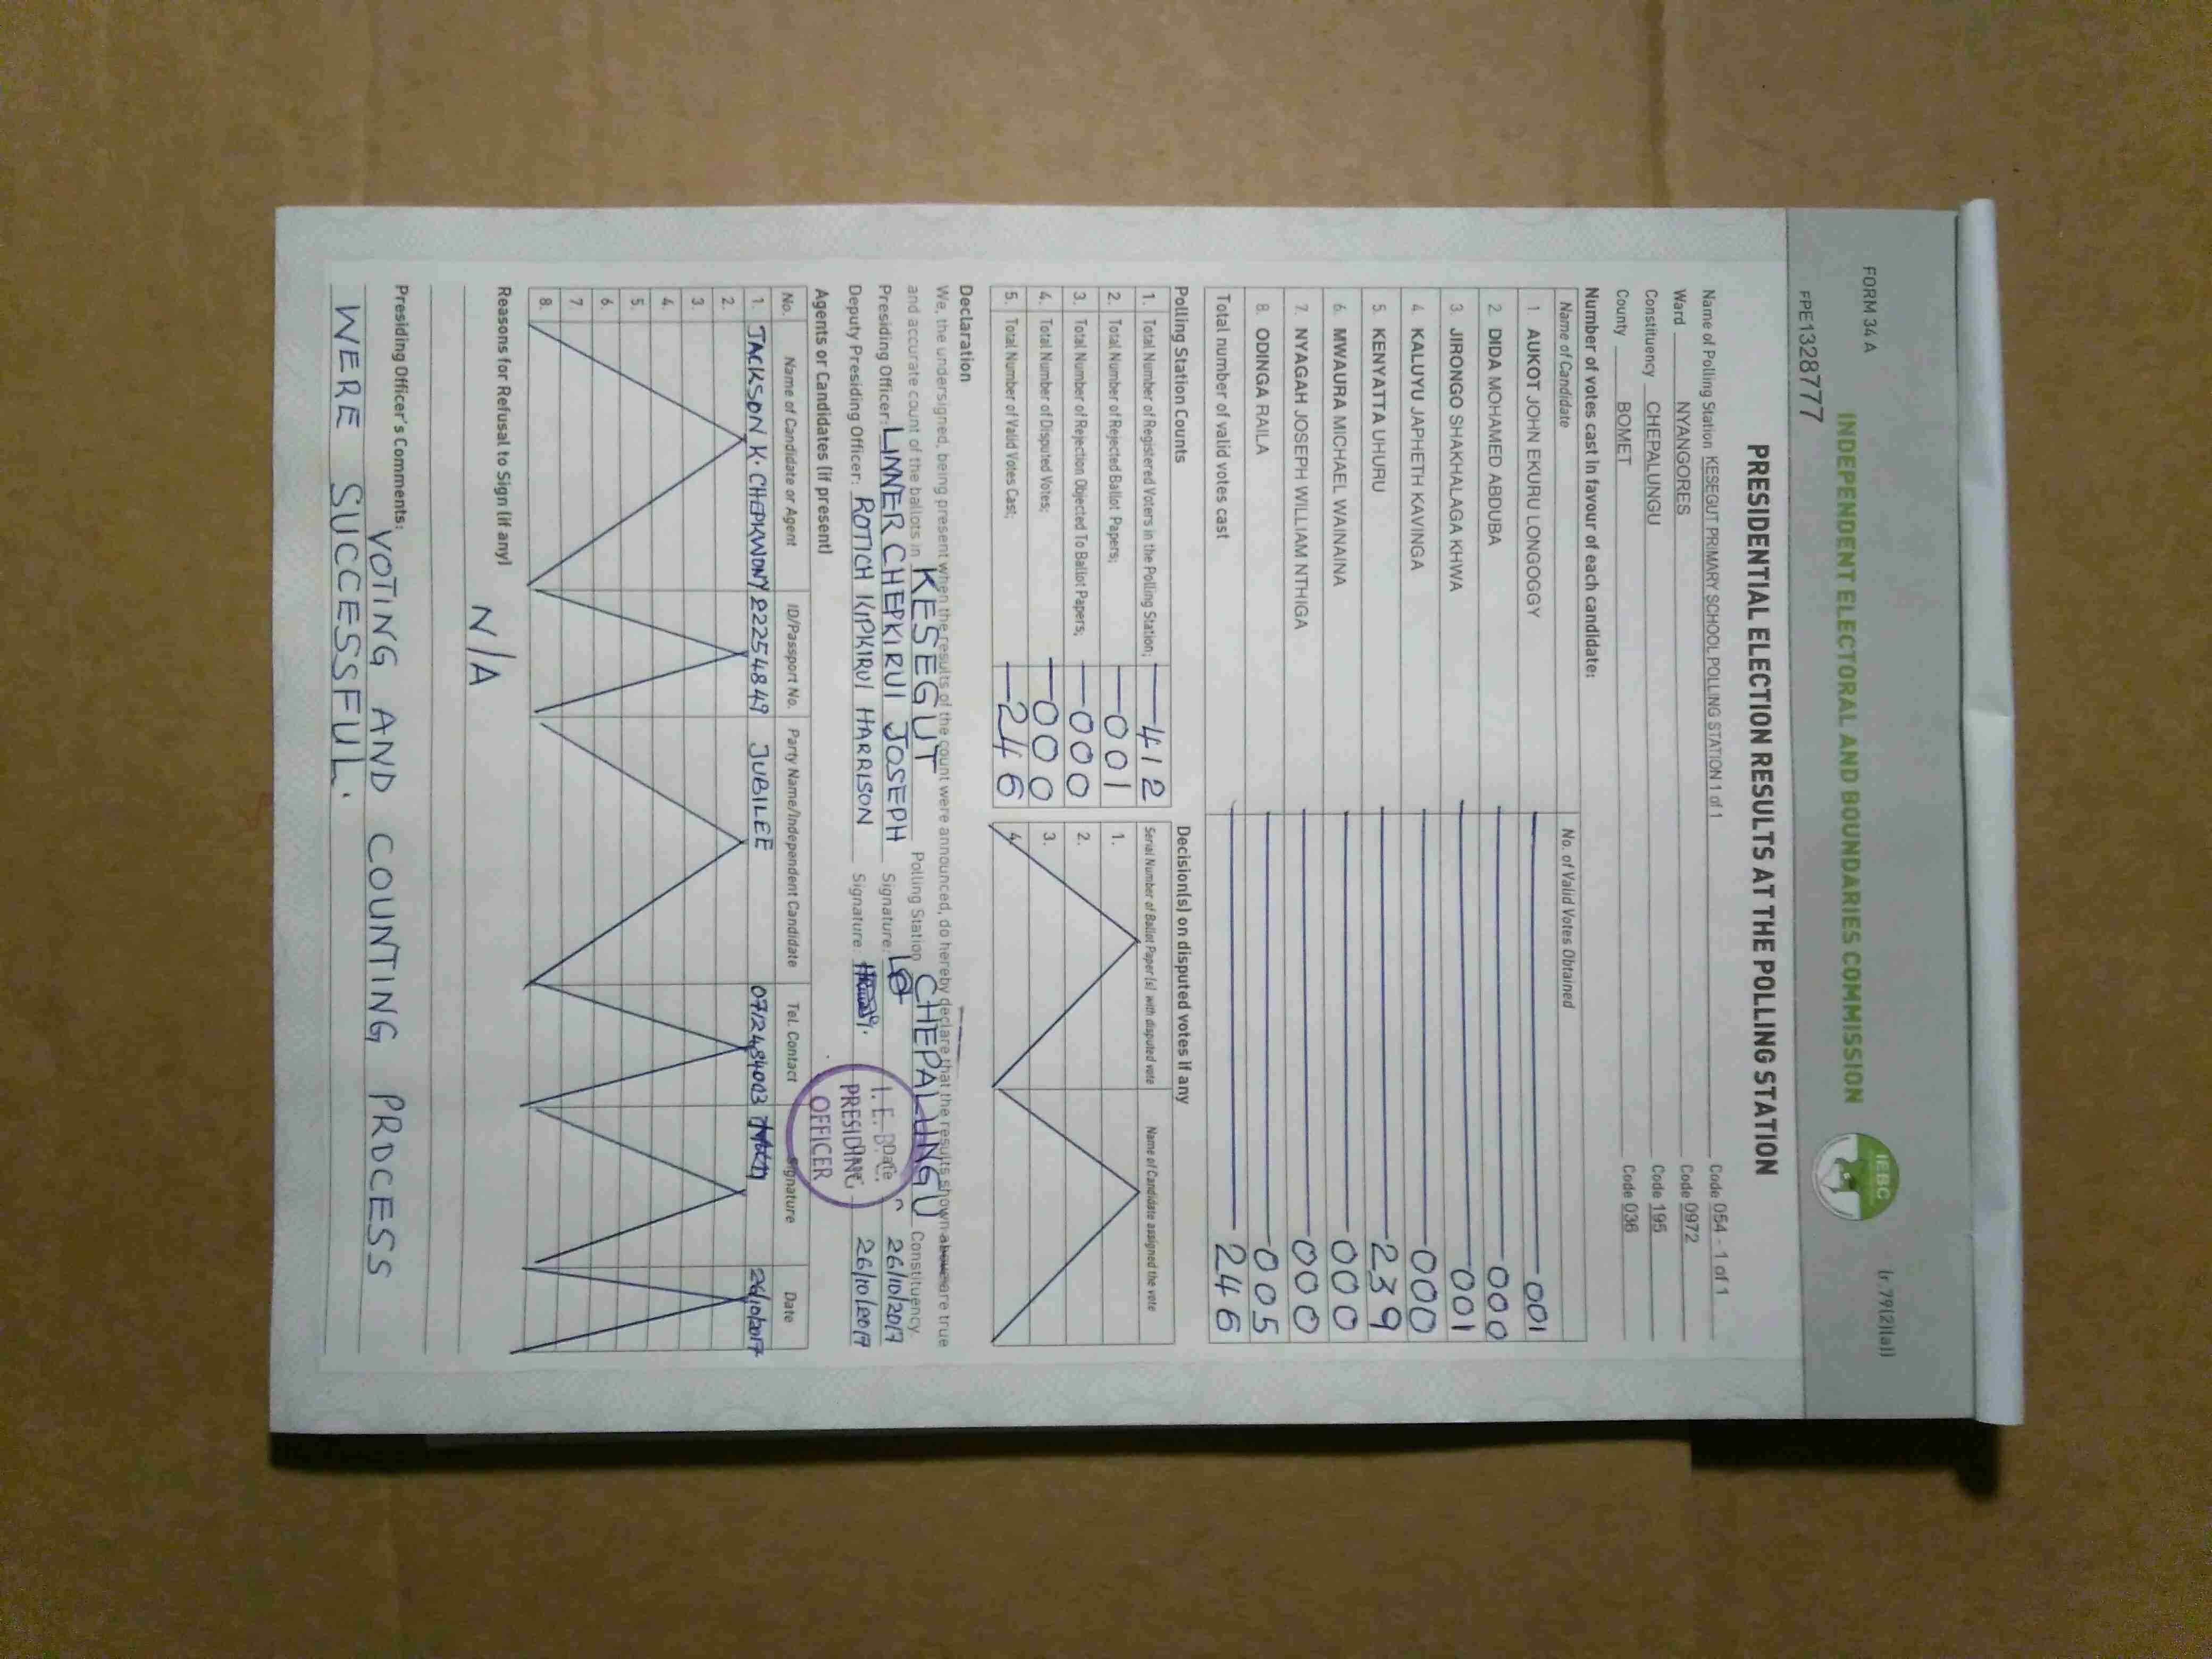 FORM 34 A
(r.79(2)(a))
INDEPENDENT ELECTORAL AND BOUNDARIES COMMISSION
IEBC
FPE1328777
PRESIDENTIAL ELECTION RESULTS AT THE POLLING STATION
Name of Polling Station KESEGUT PRIMARY SCHOOL POLLING STATION 1 of 1 Code 054 - 1 of 1
Ward NYANGORES Code 0972
Constituency CHEPALUNGU Code 195
County BOMET Code 036
Number of votes cast in favour of each candidate:
Name of Candidate No. of Valid Votes Obtained
1 AUKOT JOHN EKURU LONGOGGY 001
2. DIDA MOHAMED ABDUBA 000
3. JIRONGO SHAKHALAGA KHWA 001
4 KALUYU JAPHETH KAVINGA 000
5. KENYATTA UHURU 239
6. MWAURA MICHAEL WAINAINA 000
7. NYAGAH JOSEPH WILLIAM NTHIGA 000
8. ODINGA RAILA 005
Total number of valid votes cast 246
Polling Station Counts
1. Total Number of Registered Voters in the Polling Station; 412
2. Total Number of Rejected Ballot Papers; 001
3. Total Number of Rejection Objected To Ballot Papers; 000
4. Total Number of Disputed Votes; 000
5. Total Number of Valid Votes Cast; 246
Decision(s) on disputed votes if any
Serial Number of Ballot Paper(s) with disputed vote Name of Candidate assigned the vote
1.
2.
3.
4.
Declaration
We, the undersigned, being present when the results of the count were announced, do hereby declare that the results shown above are true
and accurate count of the ballots in KESEGUT Polling Station CHEPALUNGU Constituency
Presiding Officer: LINNER CHEPKIRUI JOSEPH Signature: Date 26/10/2017
Deputy Presiding Officer: ROTICH KIPKIRUI HARRISON Signature 26/10/2017
I.E.B.C.
PRESIDING
OFFICER
Agents or Candidates (if present)
No. Name of Candidate or Agent ID/Passport No. Party Name/Independent Candidate Tel. Contact Signature Date
1. JACKSON K. CHEPKWONY 22254849 JUBILEE 26/10/2017
2.
3.
4.
5.
6.
7.
8.
Reasons for Refusal to Sign (if any)
N/A
Presiding Officer's Comments: VOTING AND COUNTING PROCESS
WERE SUCCESSFUL.